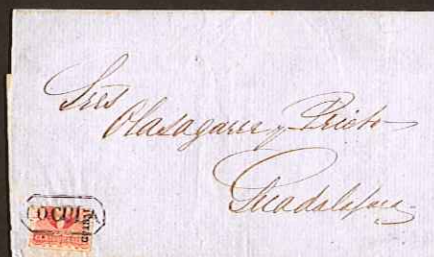 Sres
Olasagarre y Prieto
Guadalajara